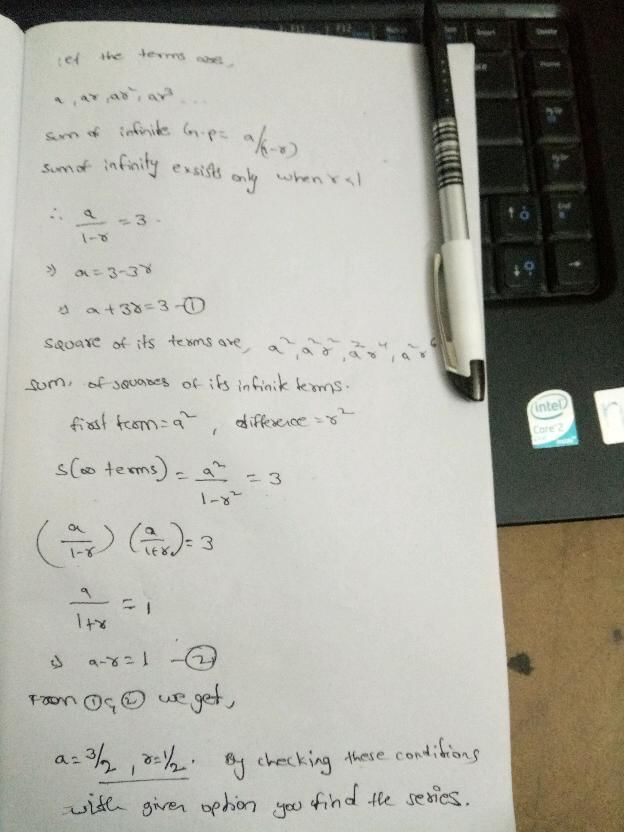 let the terms are,
a, ar, ar², ar³ ...
sum of infinite G.p = a/(1-r)
sum of infinity exsists only when r<1
∴ a/(1-r) = 3.
⇒ a = 3-3r
⇒ a+3r=3 -①
square of its terms are, a², a²r², a²r⁴, a²r⁶
sum. of squares of its infinite terms.
first term = a², difference = r²
S(∞ terms) = a²/(1-r²) = 3
(a/(1-r)) (a/(1+r)) = 3
a/(1+r) = 1
⇒ a-r=1 -②
From ① & ② we get,
a = 3/2, r = 1/2. By checking these conditions
with given option you find the series.
Delete
Home
End
intel
Core 2